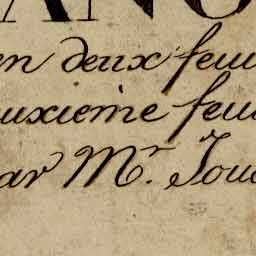 ANO
en deux feui
uxieme feui
ar Mr. Jou